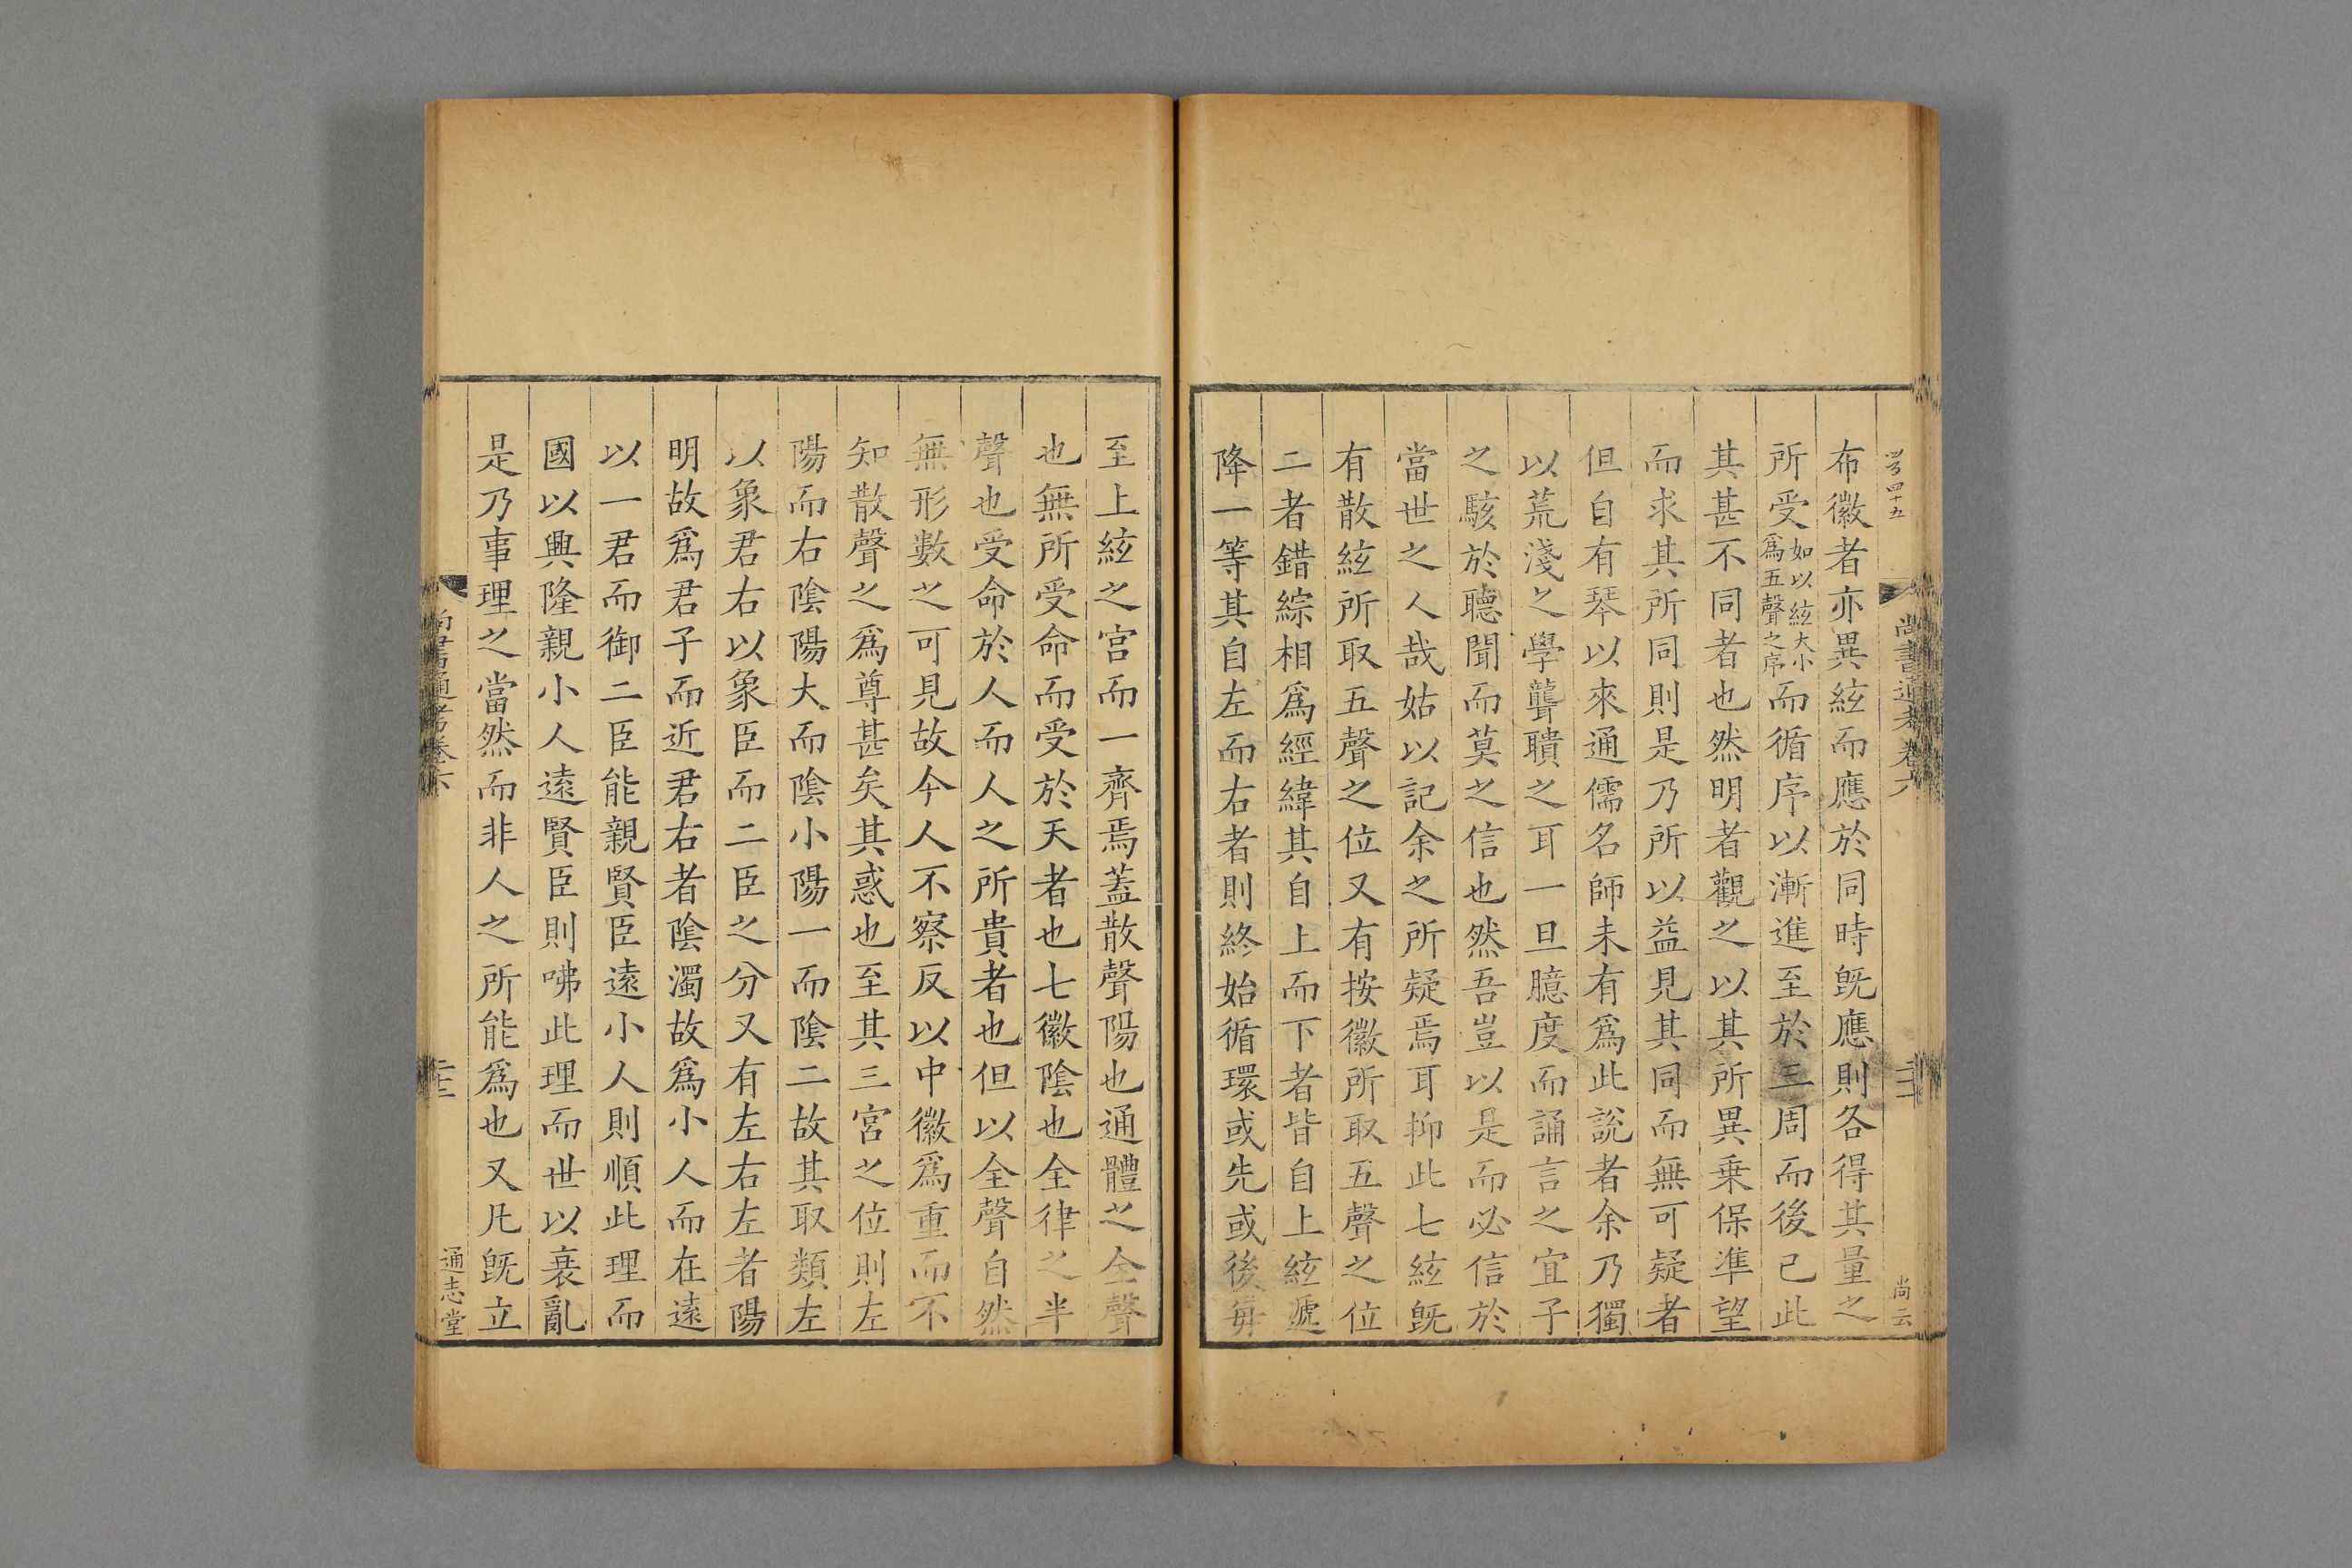 布徽者亦異絃而應於同時旣應則各得其量之
所受如以絃大小爲五聲之序而循序以漸進至於三周而後已此
其甚不同者也然明者觀之以其所異乗保準望
而求其所同則是乃所以益見其同而無可疑者
但自有琴以來通儒名師未有爲此說者余乃獨
以荒淺之學聾聵之耳一旦臆度而誦言之宜子
之駭於聽聞而莫之信也然吾豈以是而必信於
當世之人哉姑以記余之所疑焉耳抑此七絃旣
有散絃所取五聲之位又有按徽所取五聲之位
二者錯綜相爲經緯其自上而下者皆自上絃遞
降一等其自左而右者則終始循環或先或後每
至上絃之宮而一齊焉蓋散聲陽也通體之全聲
也無所受命而受於天者也七徽陰也全律之半
聲也受命於人而人之所貴者也但以全聲自然
無形數之可見故今人不察反以中徽爲重而不
知散聲之爲尊甚矣其惑也至其三宮之位則左
陽而右陰陽大而陰小陽一而陰二故其取類左
以象君右以象臣而二臣之分又有左右左者陽
明故爲君子而近君右者陰濁故爲小人而在遠
以一君而御二臣能親賢臣遠小人則順此理而
國以興隆親小人遠賢臣則咈此理而世以衰亂
是乃事理之當然而非人之所能爲也又凡旣立
尚書通考卷六
通志堂